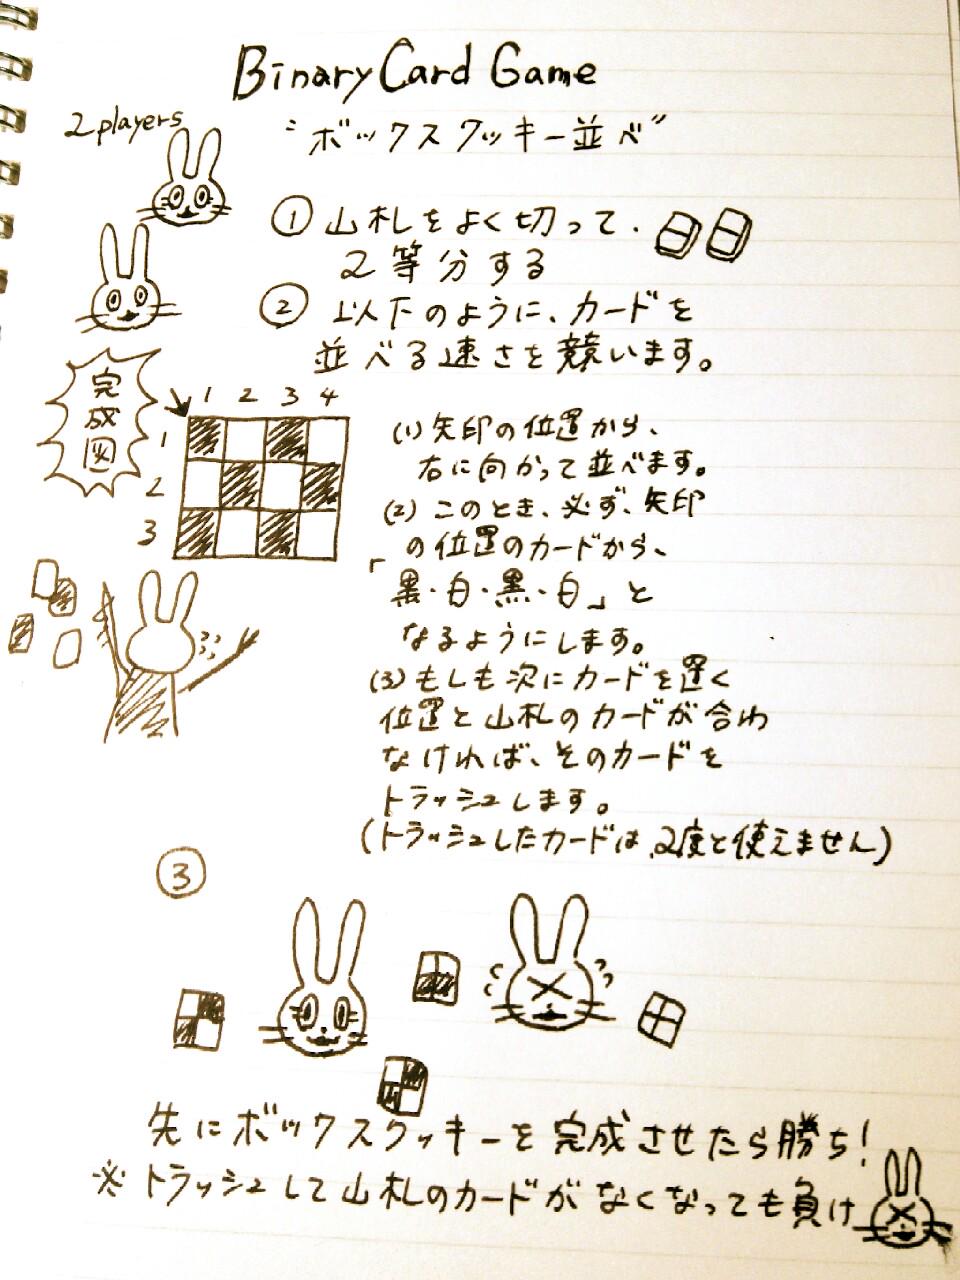 Binary Card Game
2 players
"ボックスクッキー並べ"
① 山札をよく切って、
2等分する
② 以下のように、カードを
並べる速さを競います。
完成図
1 2 3 4
1
2
3
(1) 矢印の位置から、
右に向かって並べます。
(2) このとき、必ず、矢印
の位置のカードから、
「黒・白・黒・白」と
なるようにします。
(3) もしも次にカードを置く
位置と山札のカードが合わ
なければ、そのカードを
トラッシュします。
(トラッシュしたカードは、2度と使えません)
③
先にボックスクッキーを完成させたら勝ち!
※トラッシュして山札のカードがなくなっても負け